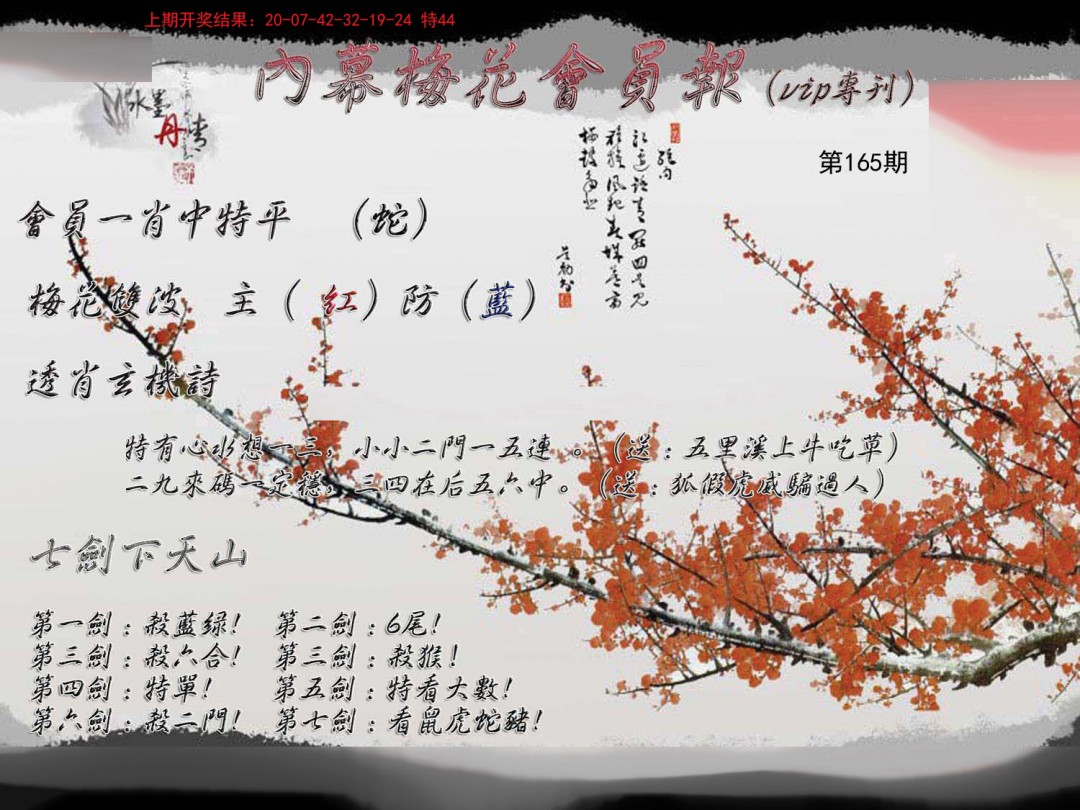 上期开奖结果：20-07-42-32-19-24 特44
內幕梅花會員報（vip專刊）
水墨丹情
第165期
會員一肖中特平 （蛇）
梅花雙波 主（紅）防（藍）
透肖玄機詩
特有心水想一三，小小二門一五連 。（送：五里溪上牛吃草）
二九來碼一定穩，三四在后五六中。（送：狐假虎威騙過人）
七劍下天山
第一劍：殺藍绿！ 第二劍：6尾！
第三劍：殺六合！ 第三劍：殺猴！
第四劍：特單！ 第五劍：特看大數！
第六劍：殺二門！ 第七劍：看鼠虎蛇豬！